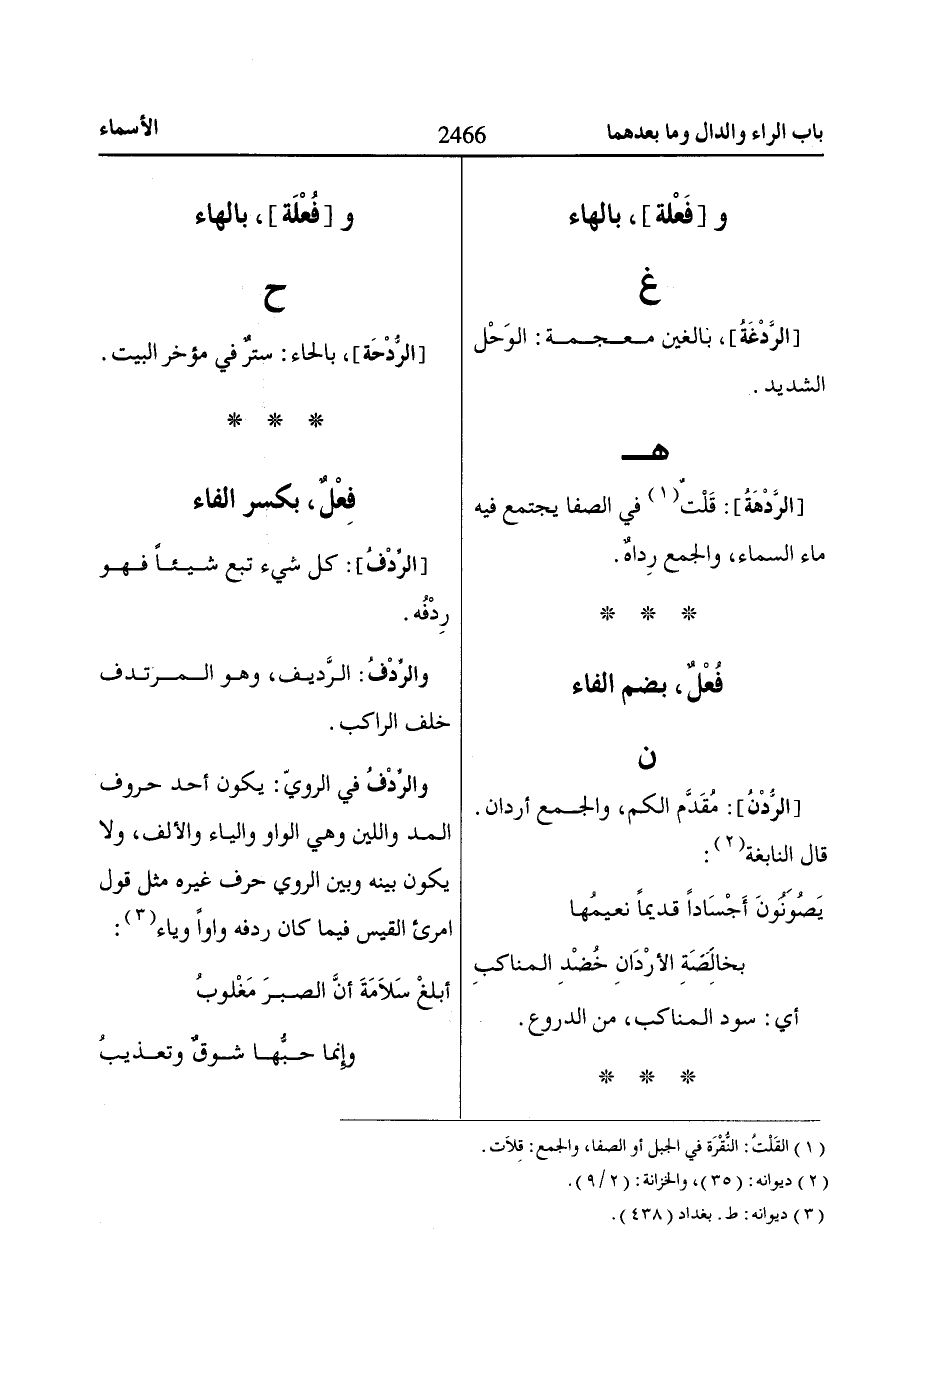 باب الراء والدال وما بعدهما
2466
الأسماء
و [فَعْلة]، بالهاء
غ
[الرَّدْغَةُ]، بالغين معجمة: الوَحْل
الشديد.
هـ
[الرَّدْهَةُ]: قَلْتٌ(١) في الصفا يجتمع فيه
ماء السماء، والجمع رِداهٌ.
* * *
فُعْلٌ، بضم الفاء
ن
[الرُّدْنُ]: مُقَدَّم الكم، والجمع أردان.
قال النابغة(٢):
يَصُونُونَ أَجْسَاداً قديماً نعيمُها
بخالَصَةِ الأرْدَانِ خُضْدِ المناكبِ
أي: سود المناكب، من الدروع.
* * *
و [فُعْلَة]، بالهاء
ح
[الرُّدْحَة]، بالحاء: سترٌ في مؤخر البيت.
* * *
فِعْلٌ، بكسر الفاء
[الرِّدْفُ]: كل شيء تبع شيئاً فهو
رِدْفُه.
والرِّدْفُ: الرَّديف، وهو المرتدف
خلف الراكب.
والرِّدْفُ في الرويّ: يكون أحد حروف
المد واللين وهي الواو والياء والألف، ولا
يكون بينه وبين الروي حرف غيره مثل قول
امرئ القيس فيما كان ردفه واواً وياء(٣):
أبلغْ سَلاَمَةَ أنَّ الصبرَ مَغْلوبُ
وإنما حبُّها شوقٌ وتعذيبُ
(١) القَلْتُ: النُّقْرَة في الجبل أو الصفا، والجمع: قِلاَت.
(٢) ديوانه: (٣٥)، والخزانة: (٢/٩).
(٣) ديوانه: ط. بغداد (٤٣٨).